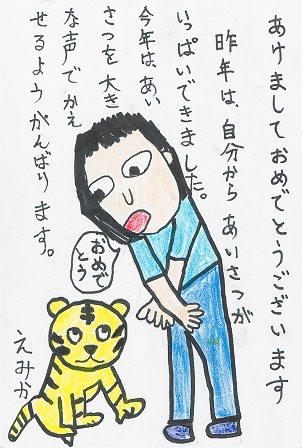 あけましておめでとうございます
昨年は、自分からあいさつが
いっぱいできました。
今年は、あい
さつを大き
な声でかえ
せるようがんばります。
おめで
とう
えみか